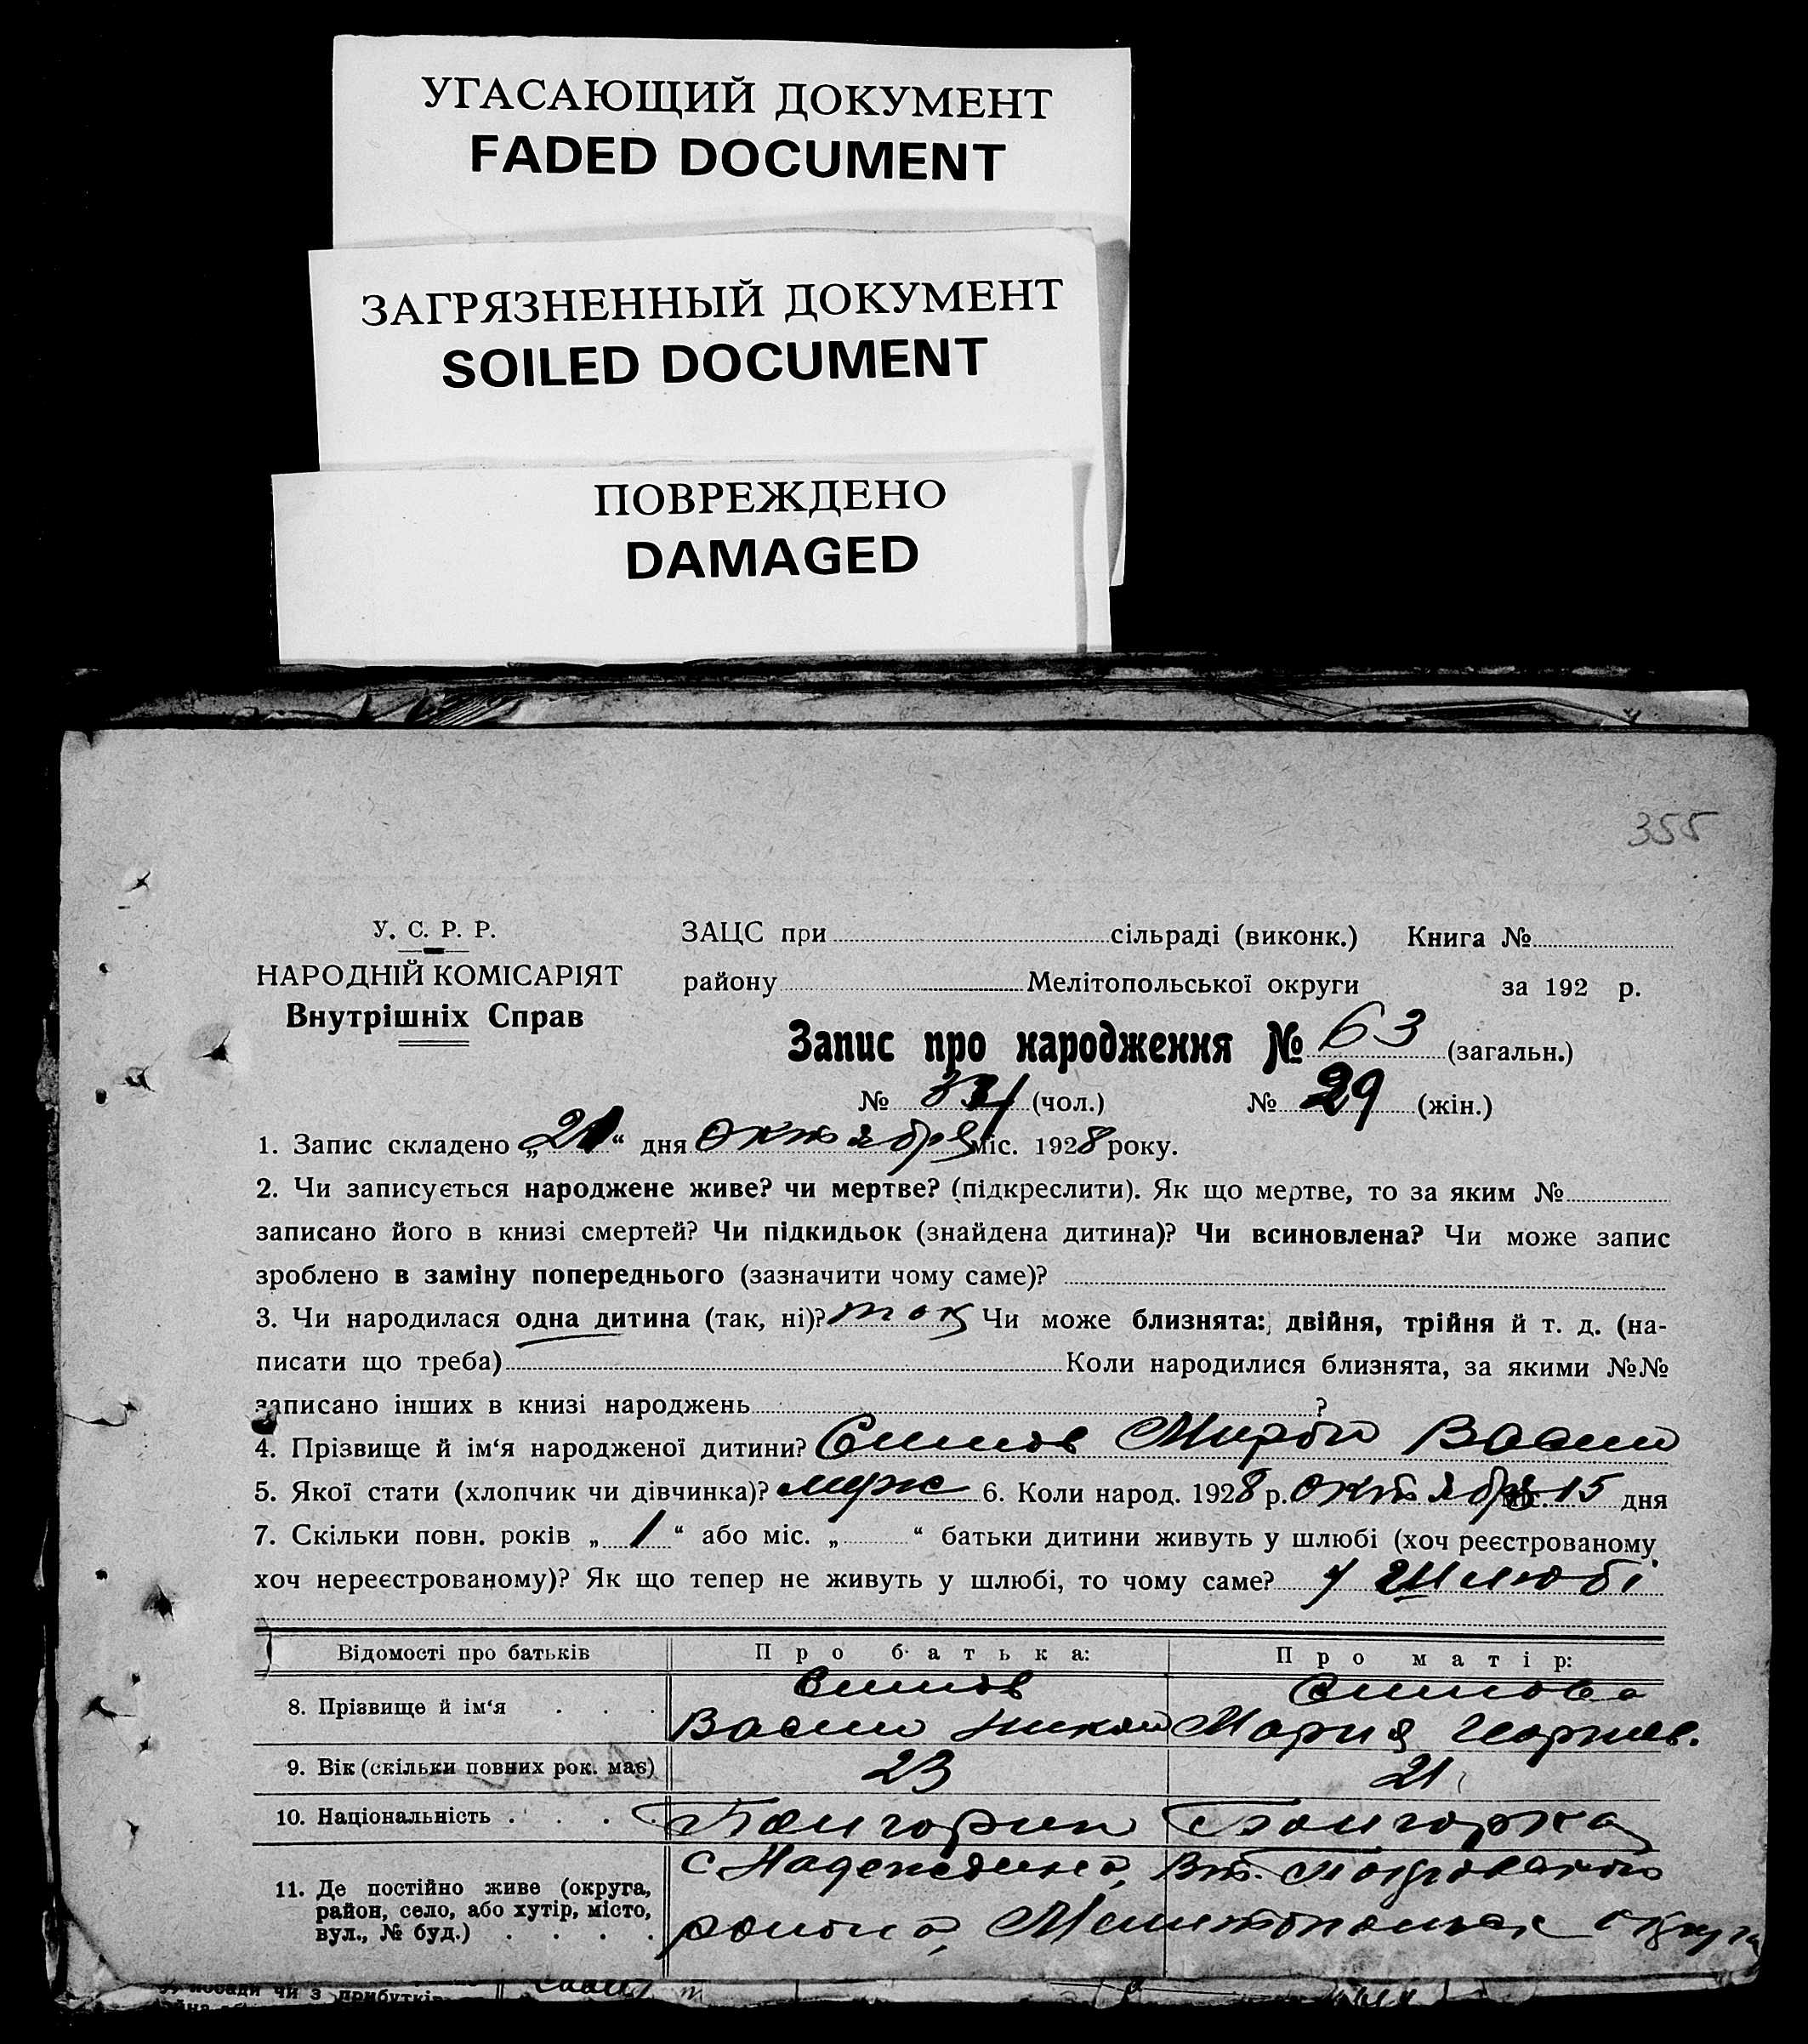 УГАСАЮЩИЙ ДОКУМЕНТ
FADED DOCUMENT
ЗАГРЯЗНЕННЫЙ ДОКУМЕНТ
SOILED DOCUMENT
ПОВРЕЖДЕНО
DAMAGED
355
У. С. Р. Р.
НАРОДНІЙ КОМІСАРІЯТ
Внутрішніх Справ
ЗАЦС при сільраді (виконк.) Книга №
району Мелітопольської округи за 192 р.
Запис про народження № 63 (загальн.)
№ 34 (чол.) № 29 (жін.)
1. Запис складено „21“ дня октября міс. 1928 року.
2. Чи записується народжене живе? чи мертве? (підкреслити). Як що мертве, то за яким №
записано його в книзі смертей? Чи підкидьок (знайдена дитина)? Чи всиновлена? Чи може запис
зроблено в заміну попереднього (зазначити чому саме)?
3. Чи народилася одна дитина (так, ні)? так Чи може близнята: двійня, трійня й т. д. (на-
писати що треба) Коли народилися близнята, за якими №№
записано інших в книзі народжень ?
4. Прізвище й ім‘я народженої дитини?
5. Якої стати (хлопчик чи дівчинка)? муж 6. Коли народ. 1928 р. октября міс. 15 дня
7. Скільки повн. років „ 1 “ або міс. „ “ батьки дитини живуть у шлюбі (хоч реєстрованому
хоч нереєстрованому)? Як що тепер не живуть у шлюбі, то чому саме? у шлюбі
Відомості про батьків Про батька: Про матір:
8. Прізвище й ім‘я . . . Васил Никол Мария Георгиев.
9. Вік (скільки повних рок. має) 23 21
10. Національність . . . . Болгорин Болгорка
11. Де постійно живе (округа,
район, село, або хутір, місто,
вул., № буд.) . . . .
с Надеждино, Вт.
району, Мелитопольск округа
посади чи з прибутків